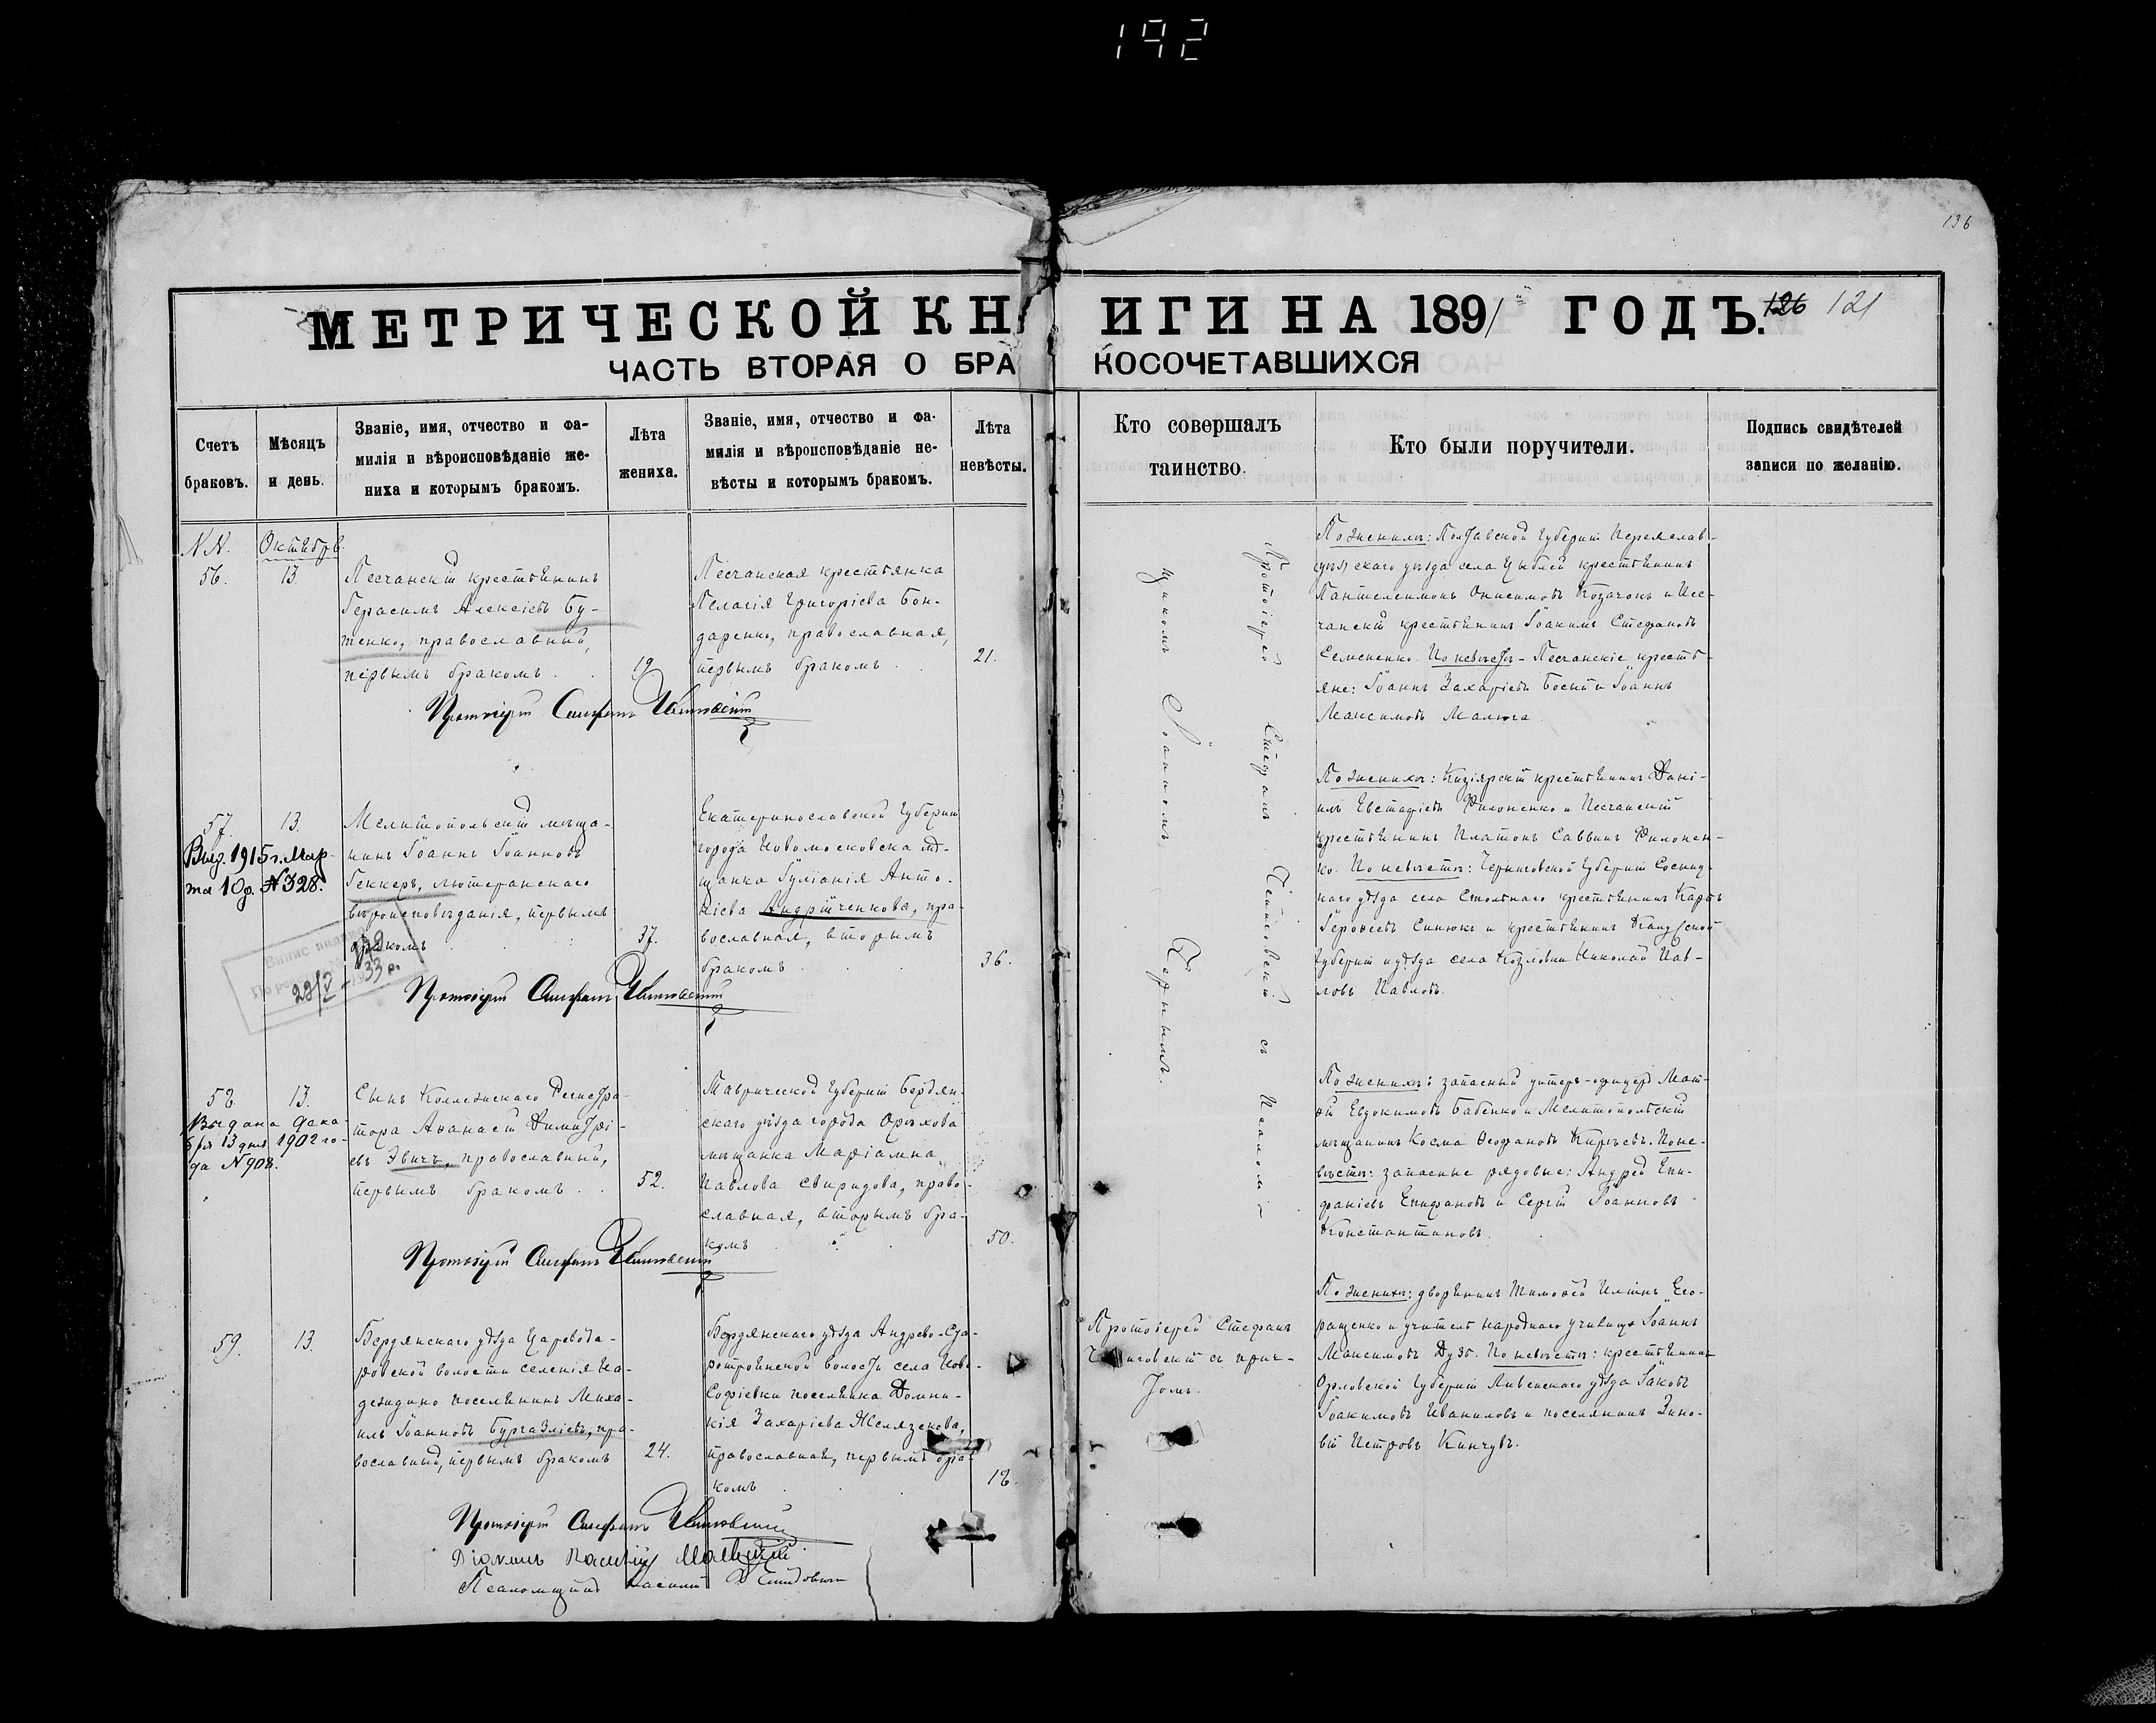 192
136
МЕТРИЧЕСКОЙ КНИГИ НА 1891й ГОДЪ.
126 121
ЧАСТЬ ВТОРАЯ О БРАКОСОЧЕТАВШИХСЯ
Счетъ
браковъ.
Мѣсяцъ
и день.
Званіе, имя, отчество и фа-
милія и вѣроисповѣданіе же-
ниха и которымъ бракомъ.
Лѣта
жениха.
Званіе, имя, отчество и фа-
милія и вѣроисповѣданіе не-
вѣсты и которымъ бракомъ.
Лѣта
невѣсты.
Кто совершалъ
таинство.
Кто были поручители.
Подпись свидѣтелей
записи по желанію.
NN.
Октябрь.
56.
13.
Песчанскій крестьянинъ
Герасимъ Алексіевъ Бу-
тенко, православный,
первымъ бракомъ
19
Песчанская крестьянка
Пелагія Григоріева Бон-
даренко, православная,
первымъ бракомъ
21.
Протоіерей Стефанъ
По женихѣ: Полтавской Губерніи Переяслав-
скаго уѣзда села Цыблей крестьянинъ
Пантелеимонъ Онисимовъ Козачокъ и Пес-
чанскій крестьянинъ Іоакимъ Стефановъ
Семененко. По невѣстѣ - Песчанскіе кресть-
яне: Іоаннъ Захаріевъ Босый и Іоаннъ
Максимовъ Малюга
57.
13.
Выд. 1915 г. Мар-
та 10 д. №328.
Мелитопольскій мѣща-
нинъ Іоаннъ Іоанновъ
Геккеръ, лютеранскаго
вѣроисповѣданія, первымъ
бракомъ
37.
Екатеринославской Губерніи
города Новомосковска мѣ-
щанка Іуліанія Анто-
ніева Андрійченкова, пра-
вославная, вторымъ
бракомъ
36.
28/V - 33 р.
Протоіерей Стефанъ
По женихѣ: Кизіярскій крестьянинъ Дані-
илъ Евстафіевъ Филоненко и Песчанскій
крестьянинъ Платонъ Саввинъ Филонен-
ко. По невѣстѣ: Черниговской Губерніи Сосниц-
каго уѣзда села Столтнаго крестьянинъ Карпъ
Синюкъ и крестьянинъ Калужской
Губерніи и уѣзда села Козловки Николай Пав-
ловъ Павловъ.
58
13.
Выдана Дека-
бря 13 дня 1902 го-
да №908.
Сынъ Коллежскаго Регистра-
тора Аѳанасій Димитрі-
евъ Эвичъ, православный,
первымъ бракомъ
52.
Таврической Губерніи Бердян-
скаго уѣзда города Орѣхова
мѣщанка Маріамна
Павлова Свиридова, право-
славная, вторымъ бра-
комъ
50.
Протоіерей Стефанъ
По женихѣ: запасный унтеръ-офицеръ Мат-
ѳій Евдокимовъ Бабенко и Мелитопольскій
мѣщанинъ Косма Ѳеофановъ Кирѣевъ. По не-
вѣстѣ: запасные рядовые: Андрей Епи-
фаніевъ Епифановъ и Сергій Іоанновъ
Константиновъ.
59.
13.
Бердянскаго уѣзда Царево-
довской волости селенія На-
деждино поселянинъ Миха-
илъ Іоанновъ Бургазліевъ, пра-
вославный, первымъ бракомъ
24.
Бердянскаго уѣзда Андрово-
волости села Ново-
Софіевки поселянка Домни-
кія Захаріева Желязскова,
православная, первымъ бра-
комъ
18.
Протоіерей Стефанъ
Діаконъ Василій
Псаломщикъ Василій
Протоіерей Стефанъ
съ прич-
томъ.
По женихѣ: дворянинъ Тимоѳей Ильинъ Его-
ращенко и учитель народнаго училища Іоаннъ
Максимовъ Дузь. По невѣстѣ: крестьянинъ
Орловской Губерніи Ливенскаго уѣзда Іаковъ
Іоакимовъ Иваниловъ и поселянинъ Зино-
вій Петровъ Кинчувъ.
Протоіерей Стефанъ съ Псаломщикомъ Іоанномъ Чернымъ.